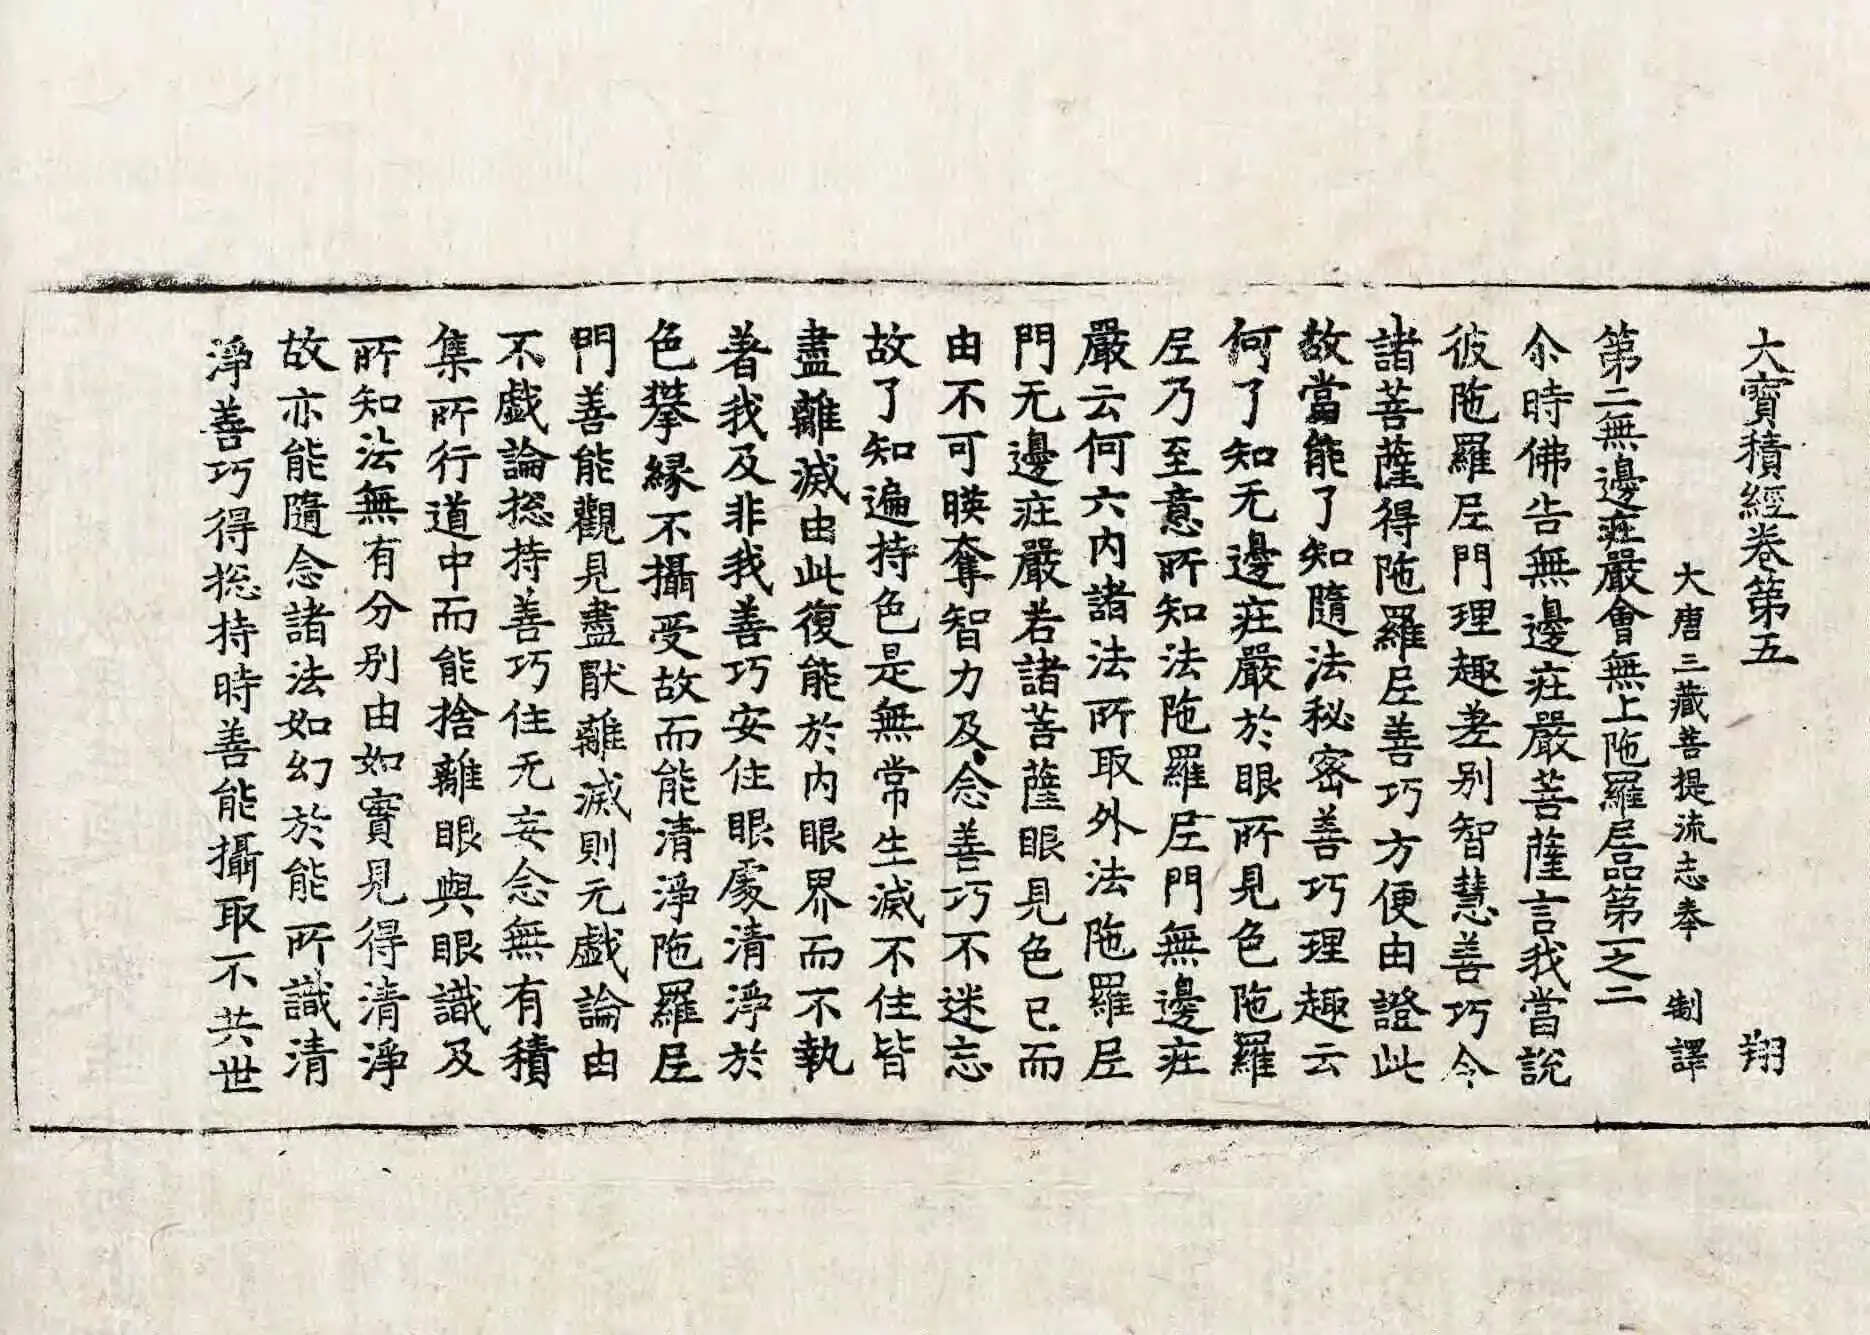 大寶積經卷第五 翔
大唐三藏菩提流志奉 制譯
第二無邊疘嚴會無上陁羅尼品第一之二
尒時佛告無邊疘嚴菩薩言我當說
彼陁羅尼門理趣差别智慧善巧令
諸菩薩得陁羅尼善巧方便由證此
故當能了知隨法秘密善巧理趣云
何了知无邊疘嚴於眼所見色陁羅
尼乃至意所知法陁羅尼門無邊疘
嚴云何六内諸法所取外法陁羅尼
門无邊疘嚴若諸菩薩眼見色已而
由不可暎奪智力及念善巧不迷忘
故了知遍持色是無常生滅不住皆
盡離滅由此復能於内眼界而不執
著我及非我善巧安住眼處清淨於
色攀緣不攝受故而能清淨陁羅尼
門善能觀見盡猒離滅則无戲論由
不戲論捴持善巧住无妄念無有積
集所行道中而能捨離眼與眼識及
所知法無有分别由如實見得清淨
故亦能隨念諸法如幻於能所識清
淨善巧得捴持時善能攝取不共世